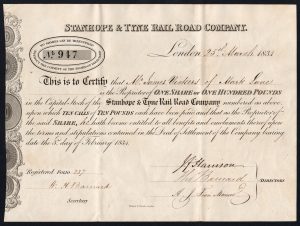 STANHOPE & TYNE RAIL ROAD COMPANY.
No 947
London 25th March 1834
This is to Certify that Mr James of Mark Lane
is the Proprietor of ONE SHARE of ONE HUNDRED POUNDS
in the Capital Stock of the Stanhope & Tyne Rail Road Company numbered as above,
upon which TEN CALLS of TEN POUNDS each have been paid and that as the Proprietor of
the said SHARE, he hath become entitled to all benefit and emoluments thereof upon
the terms and stipulations contained in the Deed of Settlement of the Company bearing
date the 3rd day of February 1834.
Harrison
Registered Folio 227
W. H. Barnard
Secretary
DIRECTORS